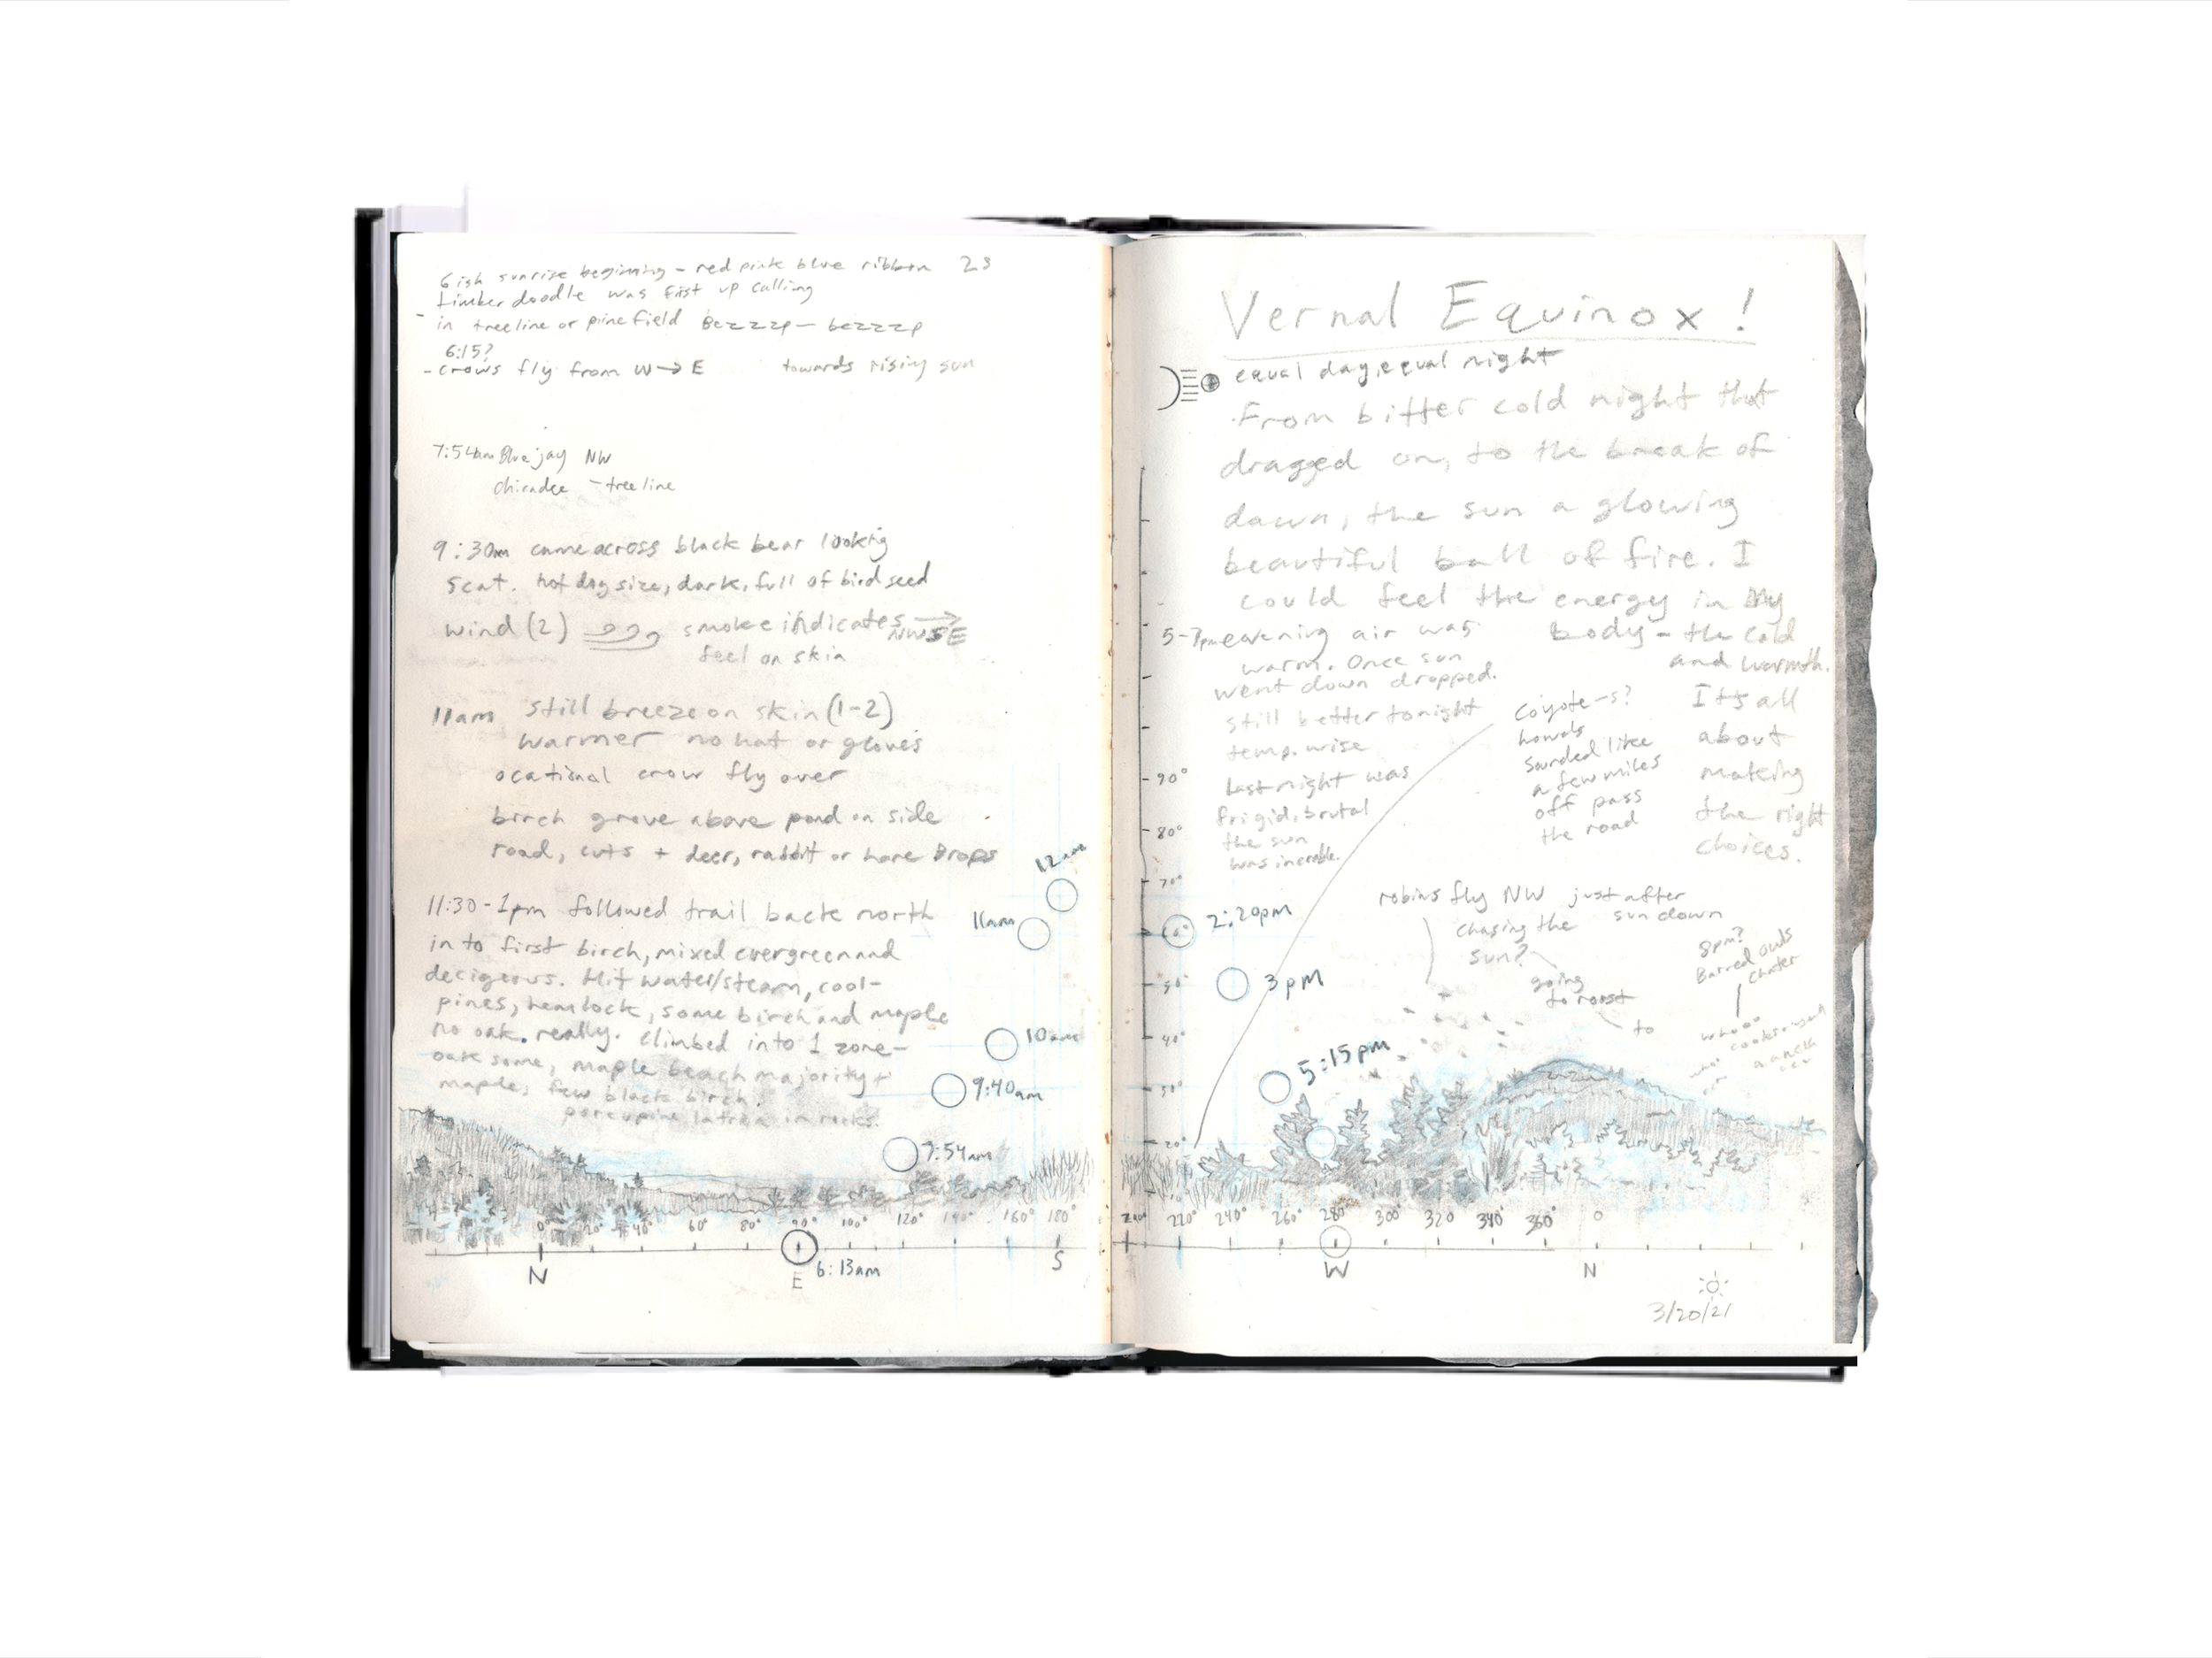 6ish sunrise beginning - red pink blue ribbon 23
timber doodle was first up calling
- in treeline or pine field Bezzzp - bezzzp
6:15?
- crows fly from W → E towards rising sun
7:54am Blue jay NW
chicadee - tree line
9:30am came across black bear looking
scat. hot dog size, dark, full of bird seed
wind (2) smoke indicates NW SE
feel on skin
11am still breeze on skin (1-2)
warmer no hat or gloves
ocational crow fly over
birch grove above pond on side
road, cuts + deer, rabbit or hare Drops
11:30 - 1pm followed trail back north
in to first birch, mixed evergreen and
decigeous. Hit water/steam, cool-
pines, hemlock, some birch and maple
no oak. really. climbed into 1 zone-
oak some, maple beach majority +
maple, few black birch.
porcupine latren in rocks.
12am
11am
10am
9:40am
7:54am
0° 20° 40° 60° 80° 90° 100° 120° 140° 160° 180°
N E 6:13am S
Vernal Equinox!
equal day, equal night
From bitter cold night that
dragged on, to the break of
dawn, the sun a glowing
beautiful ball of fire. I
could feel the energy in my
body - the cold
and warmth.
It's all
about
making
the right
choices.
5-7pm evening air was
warm. Once sun
went down dropped.
still better tonight
temp. wise
last night was
frigid, brutal
the sun
was
coyote-s?
howls
sounded like
a few miles
off pass
the road
robins fly NW just after
sun down
chasing the
sun?
going
to roost
to
8pm?
Barred owls
chater
90°
80°
70°
60°
50°
40°
30°
20°
2:20pm
3pm
5:15pm
220° 240° 260° 280° 300° 320 340° 360° 0
W N
3/20/21